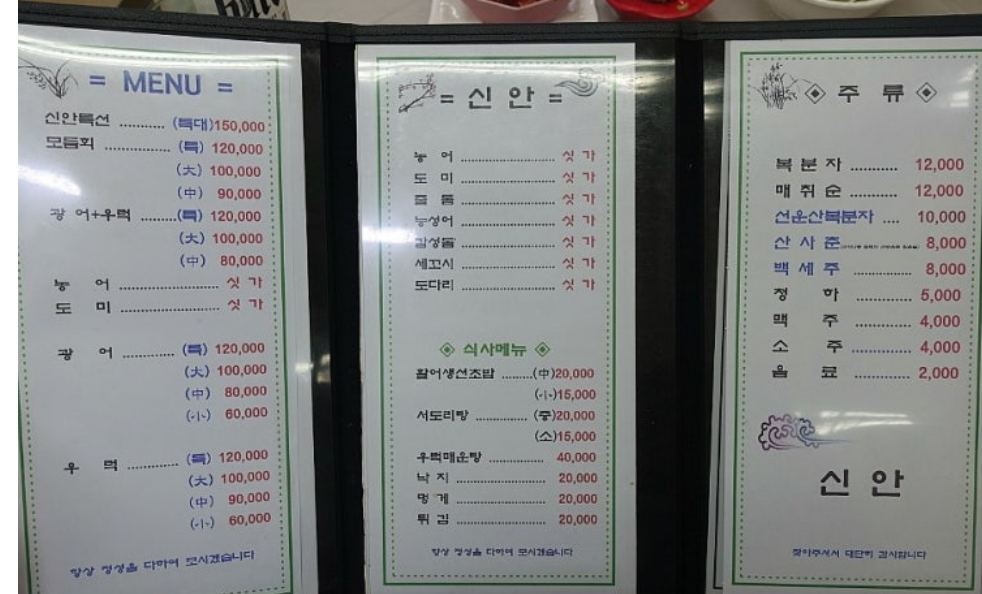 = MENU =
신안특선 ........... (특대)150,000
모듬회 ................ (특) 120,000
(大) 100,000
(中) 90,000
광 어+우럭 .........(특) 120,000
(大) 100,000
(中) 80,000
농 어 ........................ 싯 가
도 미 ........................ 싯 가
광 어 ............. (특) 120,000
(大) 100,000
(中) 80,000
(小) 60,000
우 럭 ............. (특) 120,000
(大) 100,000
(中) 90,000
(小) 60,000
항상 정성을 다하여 모시겠습니다
= 신 안 =
농 어 ........................ 싯 가
도 미 ........................ 싯 가
줄 돔 ........................ 싯 가
능성어 ........................ 싯 가
감성돔 ........................ 싯 가
세꼬시 ........................ 싯 가
도다리 ........................ 싯 가
◈ 식사메뉴 ◈
활어생선초밥 ........(中)20,000
(小)15,000
서더리탕 ............. (중)20,000
(소)15,000
우럭매운탕 .............. 40,000
낙 지 ..................... 20,000
멍 게 ..................... 20,000
튀 김 ..................... 20,000
항상 정성을 다하여 모시겠습니다
◈ 주 류 ◈
복 분 자 ........... 12,000
매 취 순 ........... 12,000
선운산복분자 .... 10,000
산 사 춘 8,000
백 세 주 ............. 8,000
청 하 ............. 5,000
맥 주 ............. 4,000
소 주 .............. 4,000
음 료 ............. 2,000
신 안
찾아주셔서 대단히 감사합니다